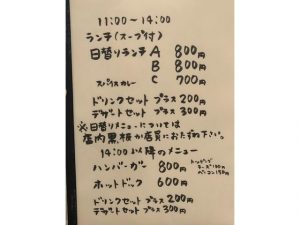 11:00~14:00
ランチ(スープ付)
日替りランチ A 800円
B 800円
C 700円
スパイスカレー
ドリンクセット プラス 200円
デザートセット プラス 300円
※日替りメニューについては
店内黒板が店員におたずね下さい。
14:00以降のメニュー
ハンバーガー 800円
トッピング
チーズ100円
ベーコン150円
ホットドック 600円
ドリンクセット プラス 200円
デザートセット プラス 300円